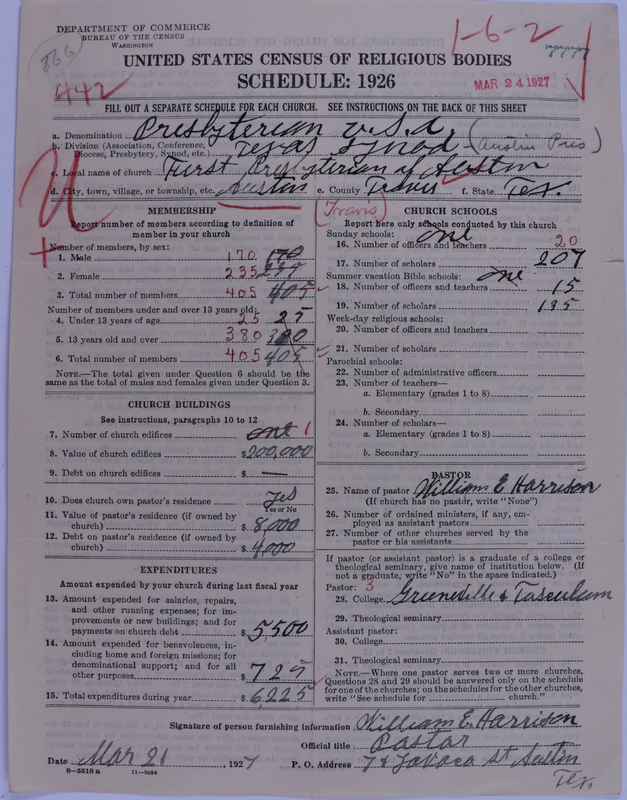 DEPARTMENT OF COMMERCE
BUREAU OF THE CENSUS
WASHINGTON
866
442
1-6-2
MAR 24 1927
UNITED STATES CENSUS OF RELIGIOUS BODIES
SCHEDULE: 1926
FILL OUT A SEPARATE SCHEDULE FOR EACH CHURCH. SEE INSTRUCTIONS ON THE BACK OF THIS SHEET
a. Denomination Presbyterian U.S.A.
b. Division (Association, Conference, Diocese, Presbytery, Synod, etc.) Texas Synod (Austin Pres)
c. Local name of church First Presbyterian of Austin
d. City, town, village, or township, etc. Austin e. County Travis f. State Tex.
(Travis)
MEMBERSHIP
Report number of members according to definition of
member in your church
Number of members, by sex:
1. Male 170 170
2. Female 235
3. Total number of members 405 405
Number of members under and over 13 years old:
4. Under 13 years of age 25 25
5. 13 years old and over 380
6. Total number of members 405 405
NOTE.—The total given under Question 6 should be the
same as the total of males and females given under Question 3.
CHURCH BUILDINGS
See instructions, paragraphs 10 to 12
7. Number of church edifices one 1
8. Value of church edifices $200,000
9. Debt on church edifices $ —
10. Does church own pastor's residence Yes
Yes or No
11. Value of pastor's residence (if owned by
church) $8,000
12. Debt on pastor's residence (if owned by
church) $4,000
EXPENDITURES
Amount expended by your church during last fiscal year
13. Amount expended for salaries, repairs,
and other running expenses; for im-
provements or new buildings; and for
payments on church debt $5500
14. Amount expended for benevolences, in-
cluding home and foreign missions; for
denominational support; and for all
other purposes $725
15. Total expenditures during year $6,225
CHURCH SCHOOLS
Report here only schools conducted by this church
Sunday schools: one
16. Number of officers and teachers 20
17. Number of scholars 207
Summer vacation Bible schools: one
18. Number of officers and teachers 15
19. Number of scholars 185
Week-day religious schools:
20. Number of officers and teachers
21. Number of scholars
Parochial schools:
22. Number of administrative officers
23. Number of teachers—
a. Elementary (grades 1 to 8)
b. Secondary
24. Number of scholars—
a. Elementary (grades 1 to 8)
b. Secondary
PASTOR
25. Name of pastor William E Harrison
(If church has no pastor, write "None")
26. Number of ordained ministers, if any, em-
ployed as assistant pastors
27. Number of other churches served by the
pastor or his assistants
If pastor (or assistant pastor) is a graduate of a college or
theological seminary, give name of institution below. (If
not a graduate, write "No" in the space indicated.)
Pastor: 3
28. College Greeneville & Tusculum
29. Theological seminary
Assistant pastor:
30. College
31. Theological seminary
NOTE.—Where one pastor serves two or more churches,
Questions 28 and 29 should be answered only on the schedule
for one of the churches; on the schedules for the other churches,
write "See schedule for church."
Signature of person furnishing information William E. Harrison
Official title Pastor
Date Mar 21, 1927 P. O. Address Lavaca St Austin
Tex.
8—5518 a 11—9084